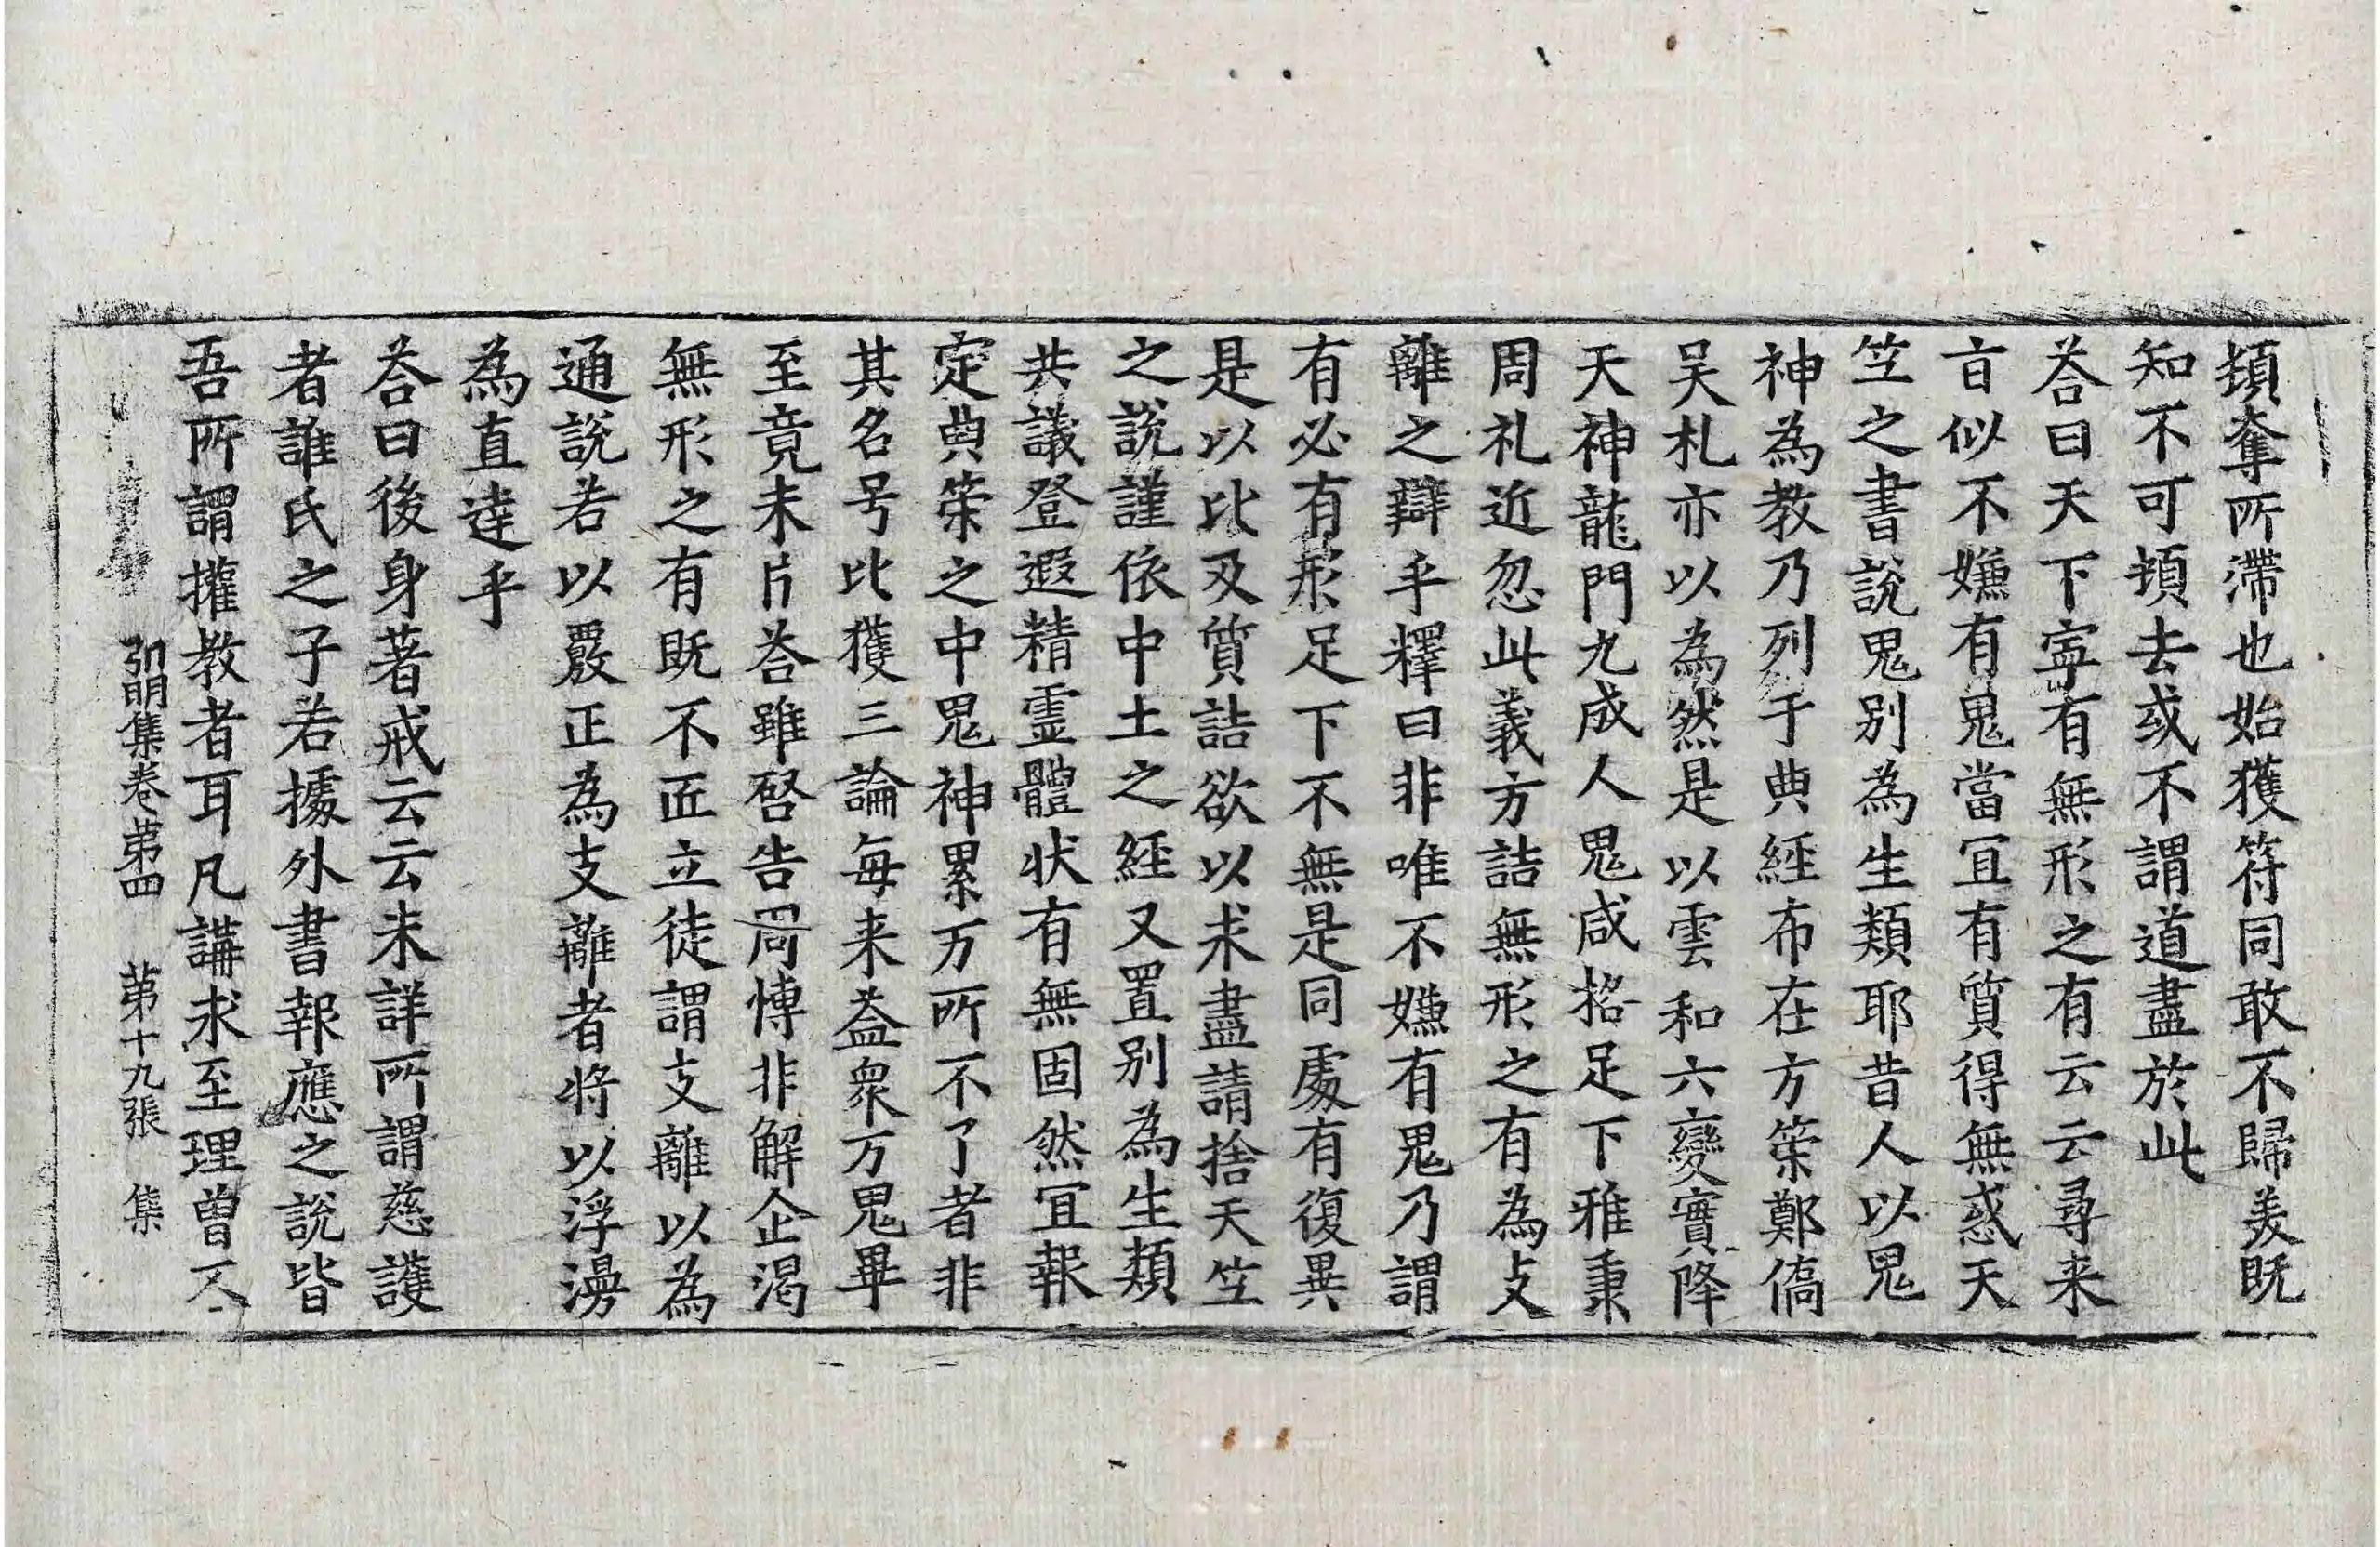 頓奪所滯也始獲符同敢不歸美既
知不可頓去或不謂道盡於此
荅曰天下寧有無形之有云云尋来
旨似不嫌有鬼當冝有質得無惑天
竺之書說鬼别為生類耶昔人以鬼
神為教乃列于典經布在方筞鄭僑
吴札亦以為然是以雲和六變實降
天神龍門九成人鬼咸格足下雅秉
周礼近忽此義方詰無形之有為支
離之辯乎釋曰非唯不嫌有鬼乃謂
有必有形足下不無是同處有復異
是以比及質詰欲以求盡請捨天竺
之說謹依中土之經又置别為生類
共議登遐精霊體状有無固然冝報
定典筞之中鬼神累万所不了者非
其名号比獲三論每来益衆万鬼畢
至竟未片荅雖啓告周慱非解企渴
無形之有既不匠立徒謂支離以為
通說若以覈正為支離者将以浮漫
為直達乎
荅曰後身著戒云云未詳所謂慈護
者誰氏之子若據外書報應之說皆
吾所謂權教者耳凡講求至理曾不
弘明集卷苐四　苐十九張　集